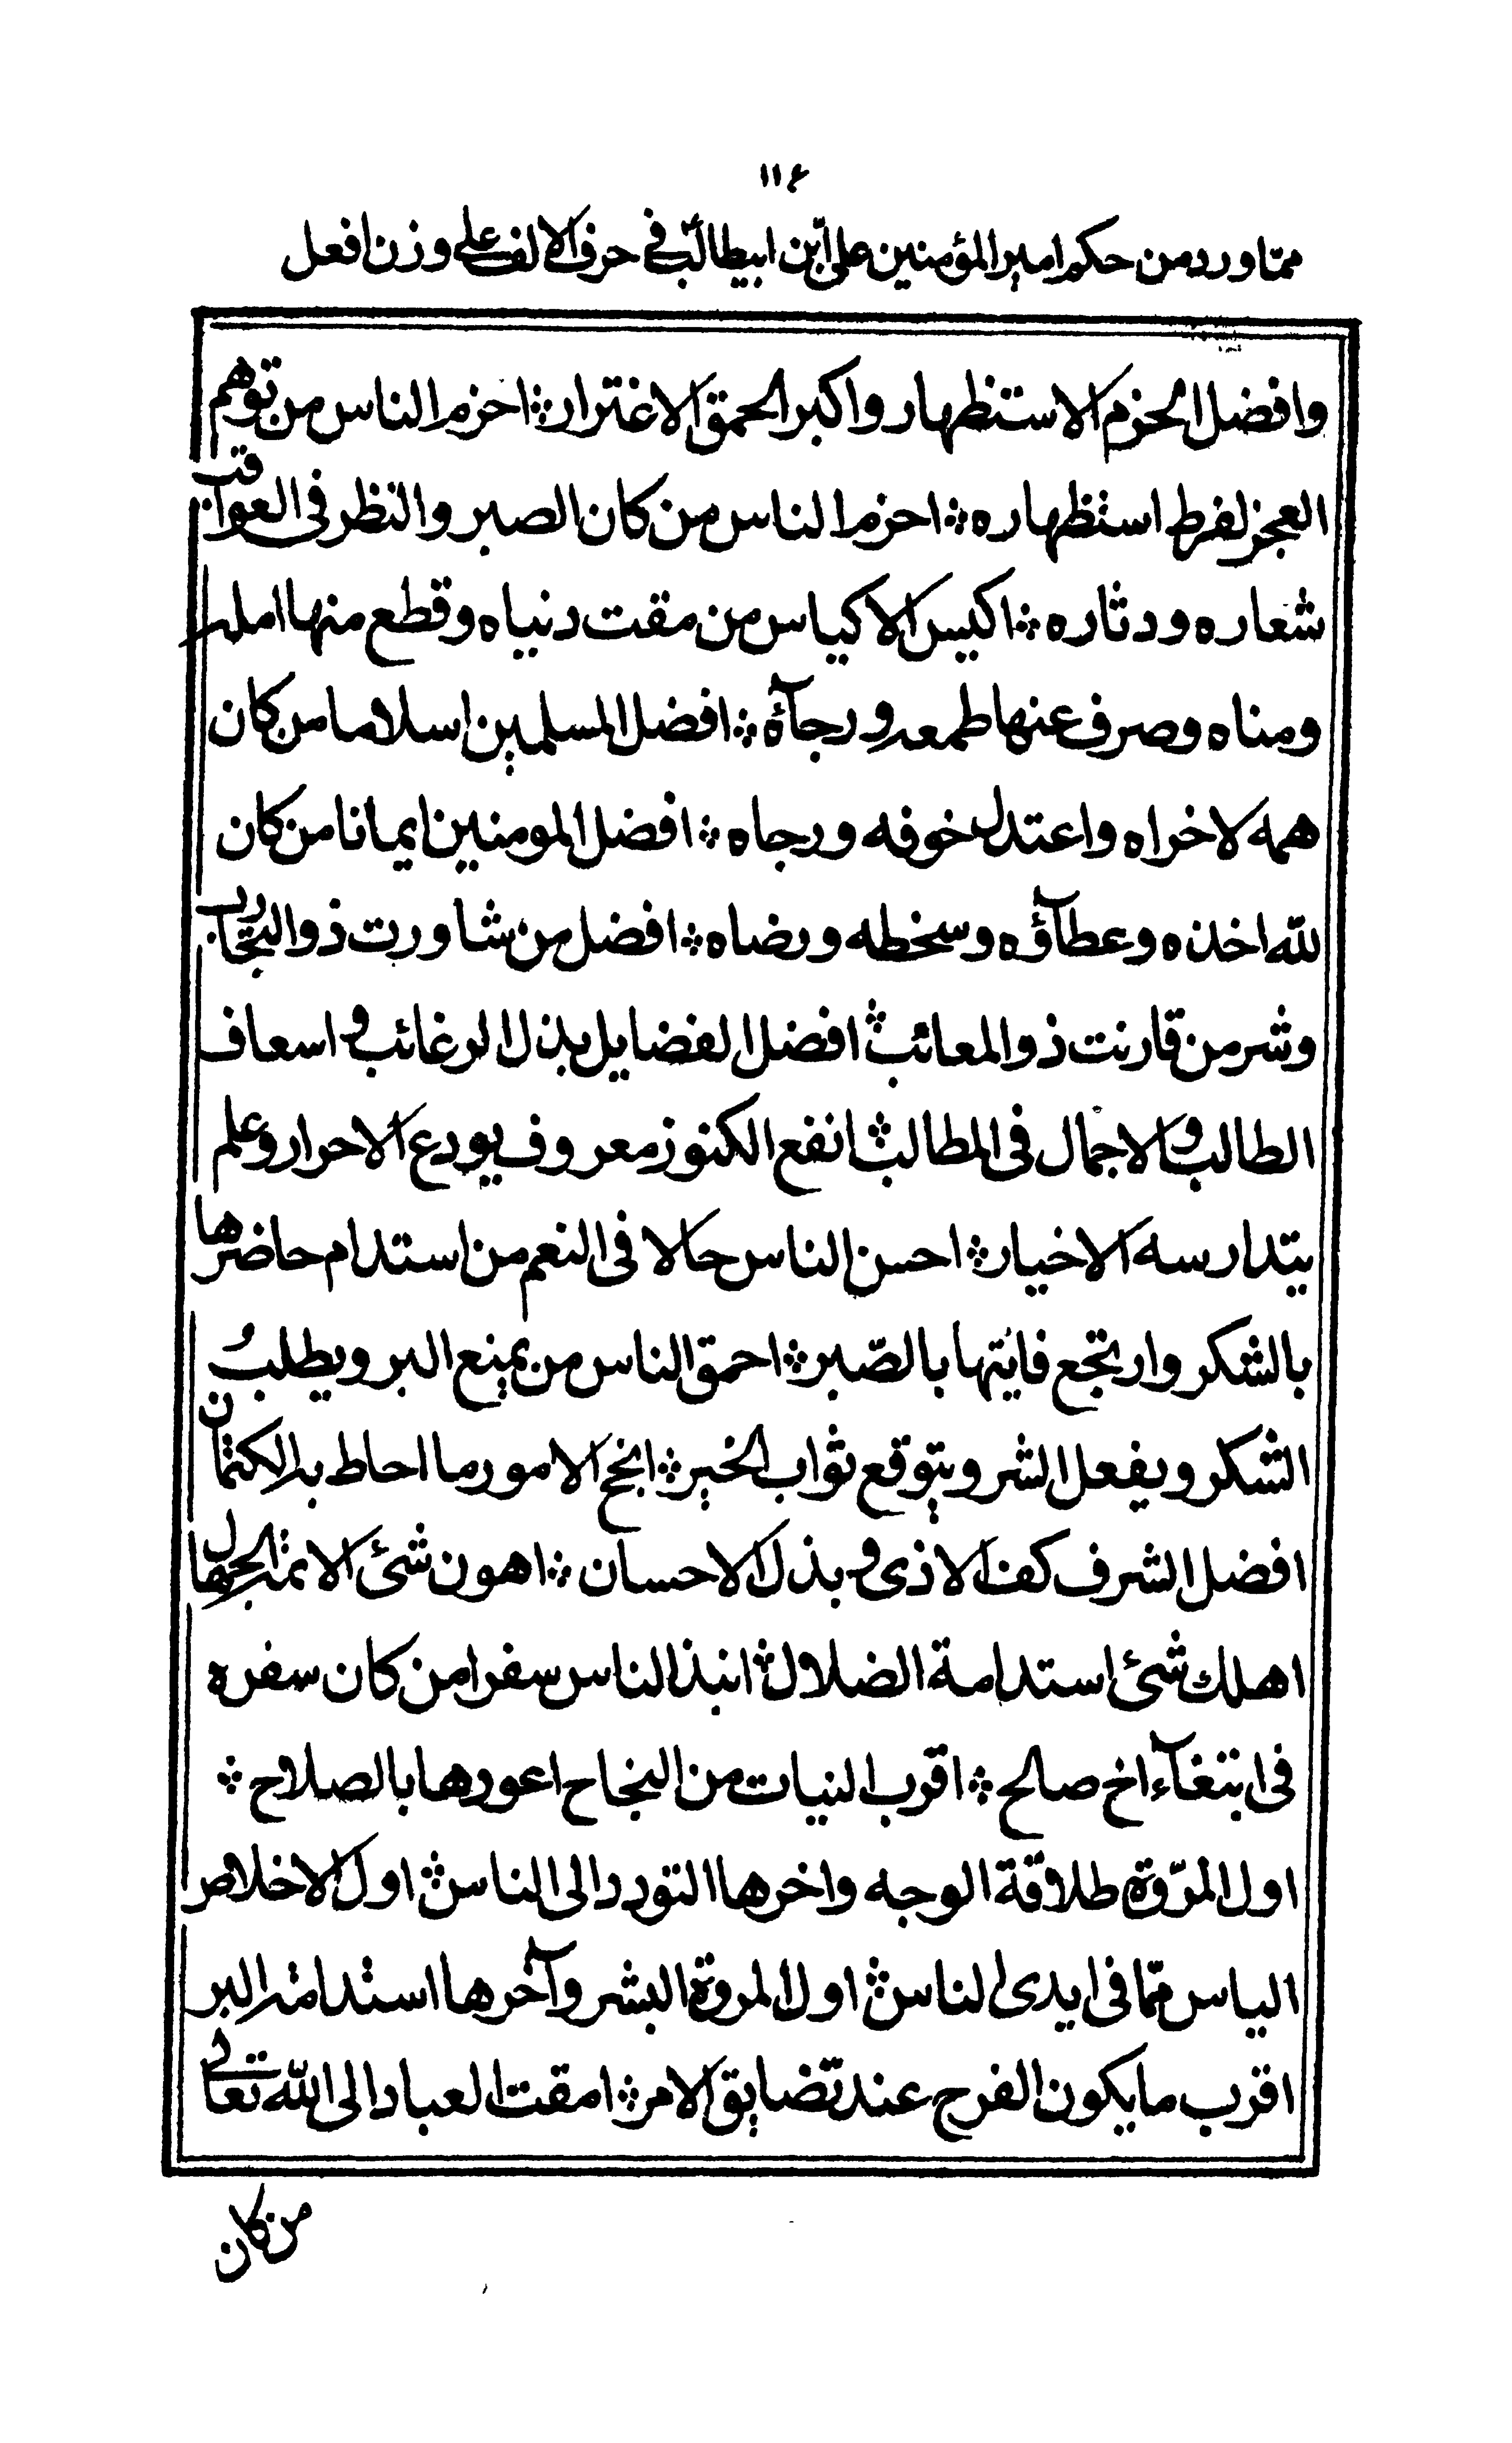 ۱۱۶
مما ورد من حكم امير المؤمنين علی ابن ابيطالب فی حرف الالف علی وزن افعل
وافضل الحزم الاستظهار واكبر الحمق الاغترار ؞ احزم الناس من توهم
العجز لفرط استظهاره ؞ احزم الناس من كان الصبر والنظر فی العواقب
شعاره ودثاره ؞ اكيس الاكياس من مقت دنياه وقطع منها امله
ومناه وصرف عنها طمعه ورجآهٔ ؞ افضل المسلمين اسلاما من كان
همه لاخراه واعتدل خوفه ورجاه ؞ افضل المومنين ايمانا من كان
لله اخذه وعطآؤه وسخطه ورضاه ؞ افضل من شاورت ذوالتجارب
وشر من قارنت ذوالمعائب ؞ افضل الفضايل بذل الرغائب و اسعاف
الطالب والاجمال فی المطالب ؞ انفع الكنوز معروف يودع الاحرار وعلم
يتدارسه الاخيار ؞ احسن الناس حالا فی النعم من استدام حاضرها
بالشكر وارتجع فايتها بالصّبر ؞ احمق الناس من يمنع البر ويطلبُ
الشكر ويفعل الشر ويتوقع ثواب الخير ؞ انجح الامور ما احاط به الكتمان
افضل الشرف كف الاذی و بذل الاحسان ؞ اهون شیٔ لائمة الجهال
اهلك شیٔ استدامة الضلال ؞ انبذ الناس سفرا من كان سفره
فی ابتغآء اخ صالح ؞ اقرب النيات من النجاح اعودها بالصلاح ؞
اول المرّوة طلاقة الوجه واخرها التودد الی الناس ؞ اول الاخلاص
الياس ممّا فی ايدی الناس ؞ اول المروة البشر وآخرها استدامة البر
اقرب ما يكون الفرج عند تضايق الامر ؞ امقت العباد الی الله تعالی
من كان